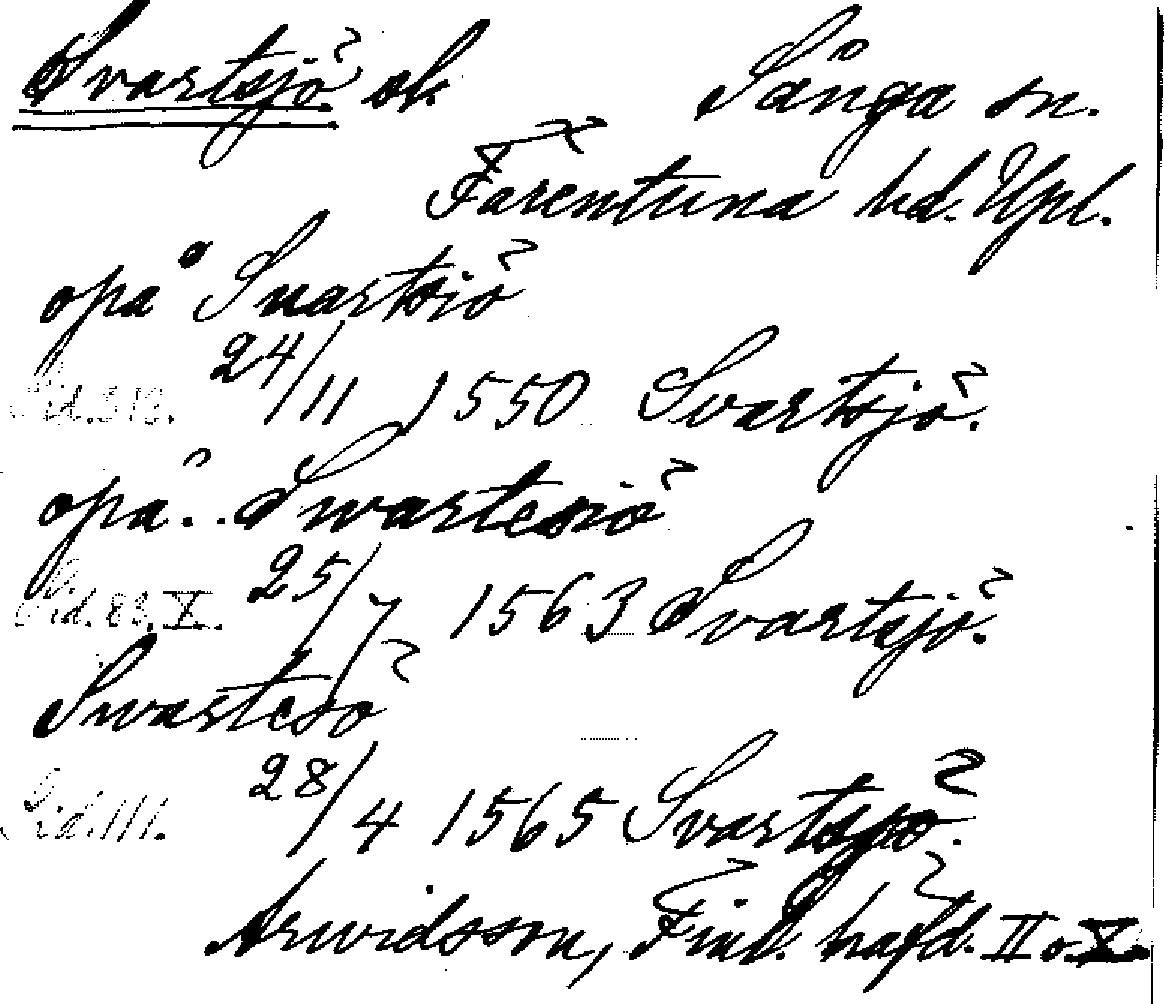 Svartsjö sl. Sånga sn.
Färentuna hd. Upl.
opå Suartsiö
Sid. 313. 24/11 1550 Svartsjö.
opå.. Swartesiö
Sid. 83. X. 25/7 1563 Svartsjö.
Swartesö
Sid. 111. 28/4 1565 Svartsjö.
Arwidsson, Finl. häfd. II o. X.